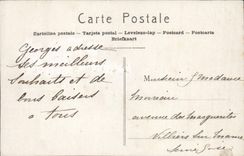 Carte Postale
Cartolina postale - Tarjeta postal - Levelezo-lap - Postcard - Postcarta
Briefkaart
Georges adresse
ses meilleurs
souhaits et de
bons baisers
à tous
Monsieur & Madame
Moreau
avenue des Marguerites
Villiers sur Marne
Seine